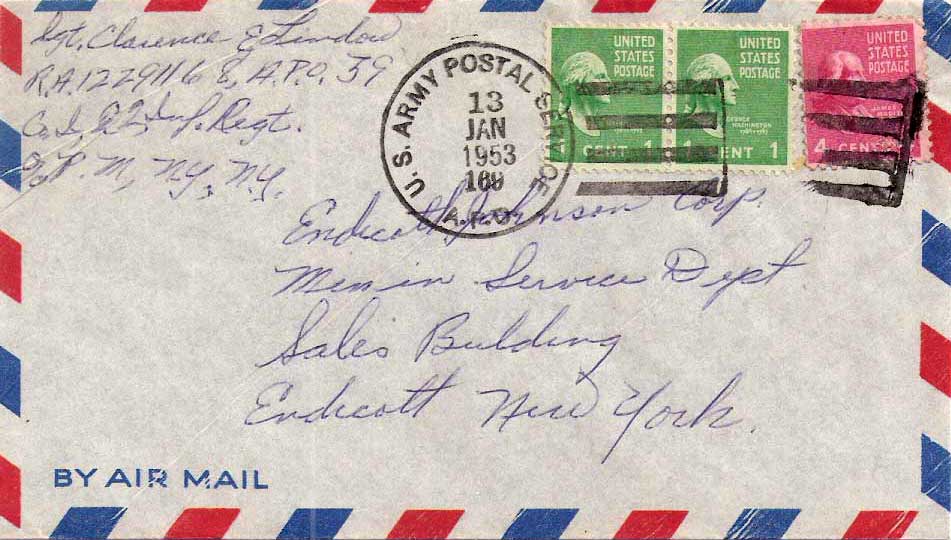 Sgt. Clarence E Lindow
R.A. 12291168, A.P.O. 39
Co. I, Inf. Regt.
P.M, N.Y, N.Y.
U.S. ARMY POSTAL SERVICE
13
JAN
1953
169
A.P.O.
UNITED
STATES
POSTAGE
CENT 1
UNITED
STATES
POSTAGE
GEORGE
WASHINGTON
1 CENT 1
UNITED
STATES
POSTAGE
JAMES
4 CENTS
Endicott Johnson Corp.
Men in Service Dept
Sales Building
Endicott New York.
BY AIR MAIL